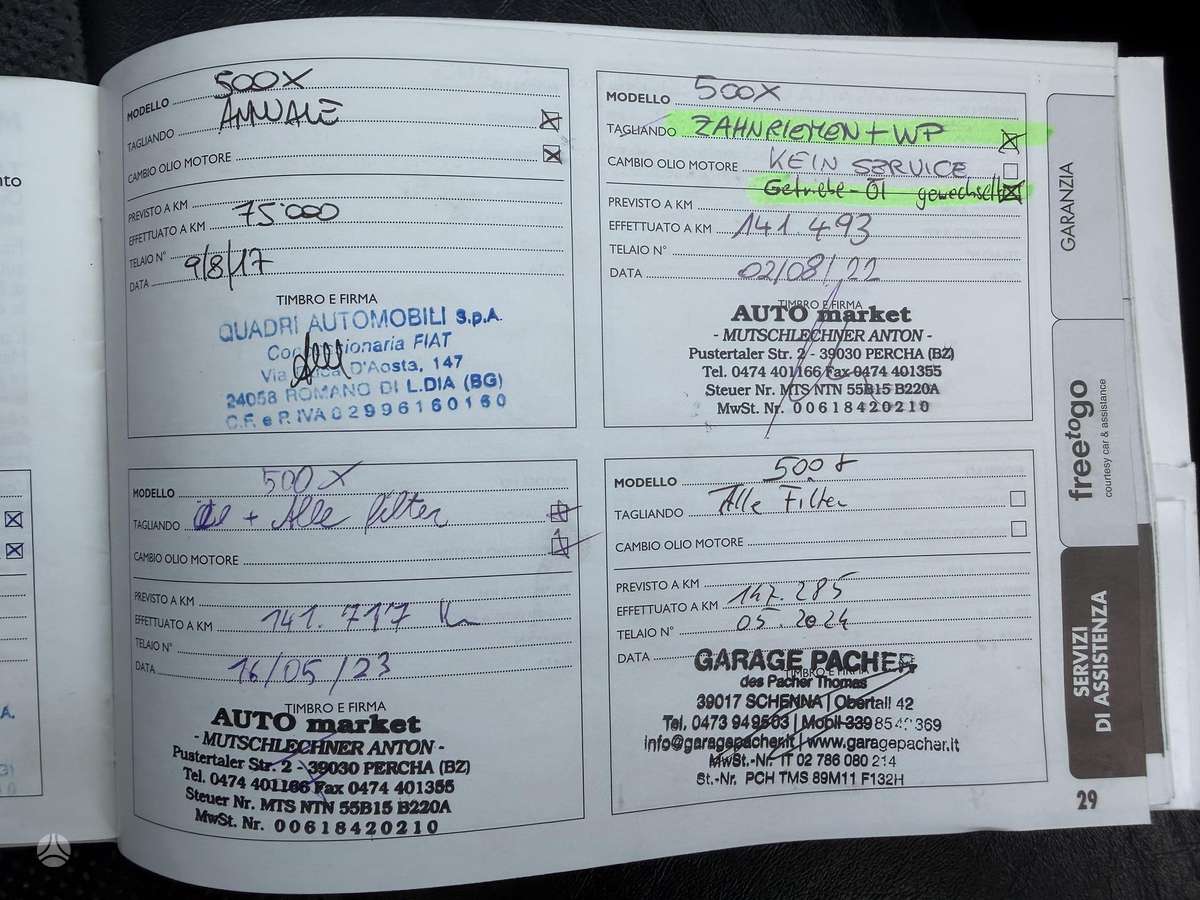 nto
A.
MODELLO 500X
TAGLIANDO ANNUALE
CAMBIO OLIO MOTORE
PREVISTO A KM
EFFETTUATO A KM 75'000
TELAIO N°
DATA 9/8/17
TIMBRO E FIRMA
QUADRI AUTOMOBILI S.p.A.
ionaria FIAT
Via D'Aosta, 147
24058 ROMANO DI L.DIA (BG)
C.F. e P. IVA 02996160160
MODELLO 500X
TAGLIANDO ZAHNRIEMEN + WP
CAMBIO OLIO MOTORE KEIN SERVICE
Getriebe-Öl gewechselt
PREVISTO A KM
EFFETTUATO A KM 141 493
TELAIO N°
DATA 02/08/22
TIMBRO E FIRMA
AUTO market
- MUTSCHLECHNER ANTON -
Pustertaler Str. 2 - 39030 PERCHA (BZ)
Tel. 0474 401166 Fax 0474 401355
Steuer Nr. MTS NTN 55B15 B220A
MwSt. Nr. 00618420210
MODELLO 500X
TAGLIANDO Öl + Alle filter
CAMBIO OLIO MOTORE
PREVISTO A KM
EFFETTUATO A KM 141.717 Km
TELAIO N°
DATA 16/05/23
TIMBRO E FIRMA
AUTO market
- MUTSCHLECHNER ANTON -
Pustertaler Str. 2 - 39030 PERCHA (BZ)
Tel. 0474 401166 Fax 0474 401355
Steuer Nr. MTS NTN 55B15 B220A
MwSt. Nr. 00618420210
MODELLO 500X
TAGLIANDO Alle Filter
CAMBIO OLIO MOTORE
PREVISTO A KM
EFFETTUATO A KM 147.285
TELAIO N° 05.2024
DATA
TIMBRO E FIRMA
GARAGE PACHER
des Pacher Thomas
39017 SCHENNA | Obertall 42
Tel. 0473 949503 | Mobil 339 369
info@garagepacher.it | www.garagepacher.it
MwSt.-Nr. IT 02 786 080 214
St.-Nr. PCH TMS 89M11 F132H
GARANZIA
freetogo
courtesy car & assistance
SERVIZI
DI ASSISTENZA
29